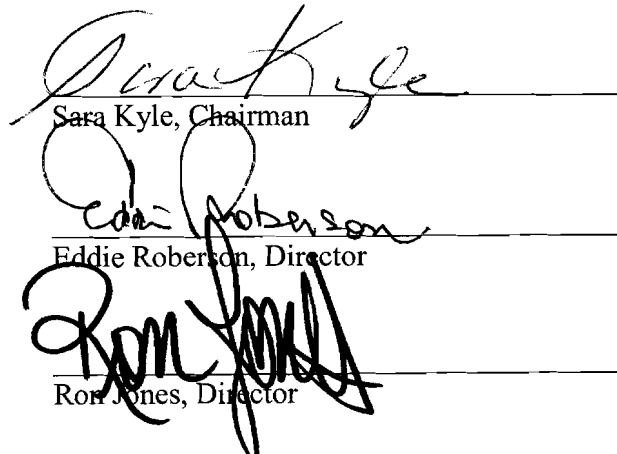 Sara Kyle
Sara Kyle, Chairman
Eddie Roberson
Eddie Roberson, Director
Ron Jones
Ron Jones, Director